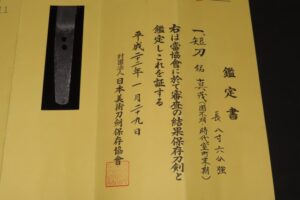 鑑定書
一、短刀 銘 真茂(国不明・時代室町末期)
長 八寸六分強
右は當協會に於て審査の結果保存刀剣と
鑑定しこれを証する
平成二十二年一月二十九日
財團法人日本美術刀剣保存協會